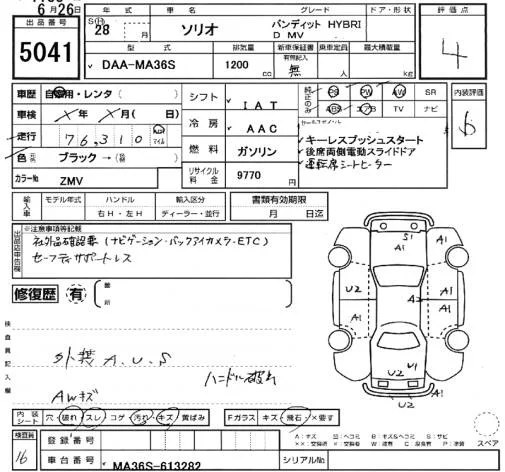 6月26日
出品番号
5041
年式
車名
グレード
ドア・形状
評価点
S(H)
28
月
ソリオ
バンディット HYBRI
D MV
4
型式
排気量
新車保証書
乗車定員
最大積載量
有無記入
DAA-MA36S
1200
cc
無
人
kg
車歴
自家用・レンタ
シフト
IAT
PS
PW
AW
SR
内装評価
車検
年
月
日
冷房
AAC
ABS
TV
ナビ
セールスポイント
走行
76,310
マイル
燃料
ガソリン
キーレスプッシュスタート
後席両側電動スライドドア
運転席シートヒーター
色
ブラック
カラーNo
ZMV
リサイクル料金
9770
円
輸入車
モデル年式
ハンドル
輸入区分
書類有効期限
右H・左H
ディーラー・並行
月
日迄
出品店申告欄
※注意事項等記載
社外品確認要(ナビゲーション・バックアイカメラ・ETC)
セーフティサポートレス
修復歴
有
箇所
検査員記入欄
外装 A.U.S
ハンドル破れ
AWキズ
S1
A1
A1
U2
A2
A1
A1
A1
U1
U2
U2
内装シート
穴・破れ・スレ・コゲ・汚れ・キズ・黄ばみ
Fガラス
キズ・飛石・×要す
スペア
検査員
16
登録番号
車台番号
MA36S-613282
シリアルNo